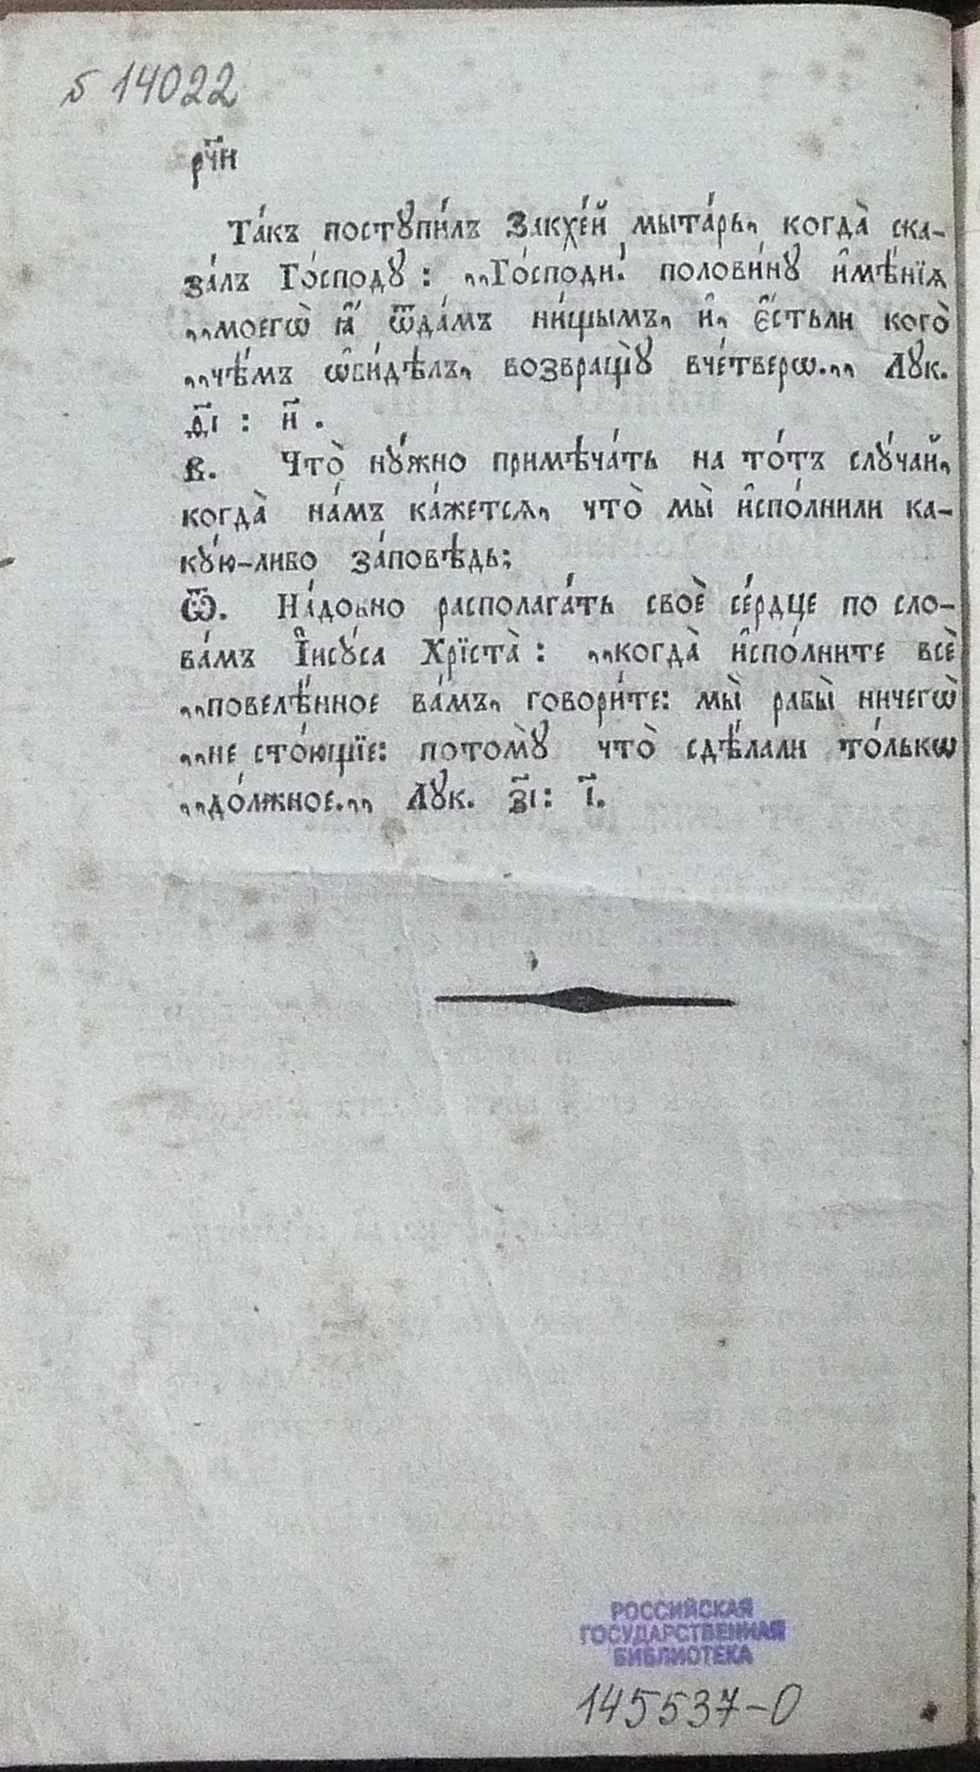 Б 14022
рч҃и
Та́къ постꙋпи́лъ Закхе́й мыта́рь, когда̀ ска-
за́лъ Го́сподꙋ : „Го́споди! полови́нꙋ и҆мѣ́нїѧ
„моегѡ̀ ꙗ҆̀ ѿда́мъ ни́щымъ, и҆, є҆́стьли кого̀
„чѣ́мъ ѡ҆би́дѣлъ, возвращꙋ̀ вче́тверѡ.„ Лꙋк.
д҃і : и҃ .
В. Что̀ нꙋ́жно примѣча́ть на то́тъ слꙋ́чай,
когда̀ на́мъ ка́жетсѧ, что̀ мы̀ и҆спо́лнили ка-
кꙋ́ю-либо за́повѣдь;
Ѿ. На́добно располага́ть своѐ се́рдце по сло-
ва́мъ І҆исꙋ́са Хрїста̀ : „когда̀ и҆спо́лните всѐ
„повелѣ́нное ва́мъ, говори́те: мы̀ рабы̀ ничегѡ̀
„не сто́ющїе: потомꙋ̀ что̀ сдѣ́лали то́лькѡ
„до́лжное.„ Лꙋк. з҃і : і҃.
РОССИЙСКАЯ
ГОСУДАРСТВЕННАЯ
БИБЛИОТЕКА
145537-0